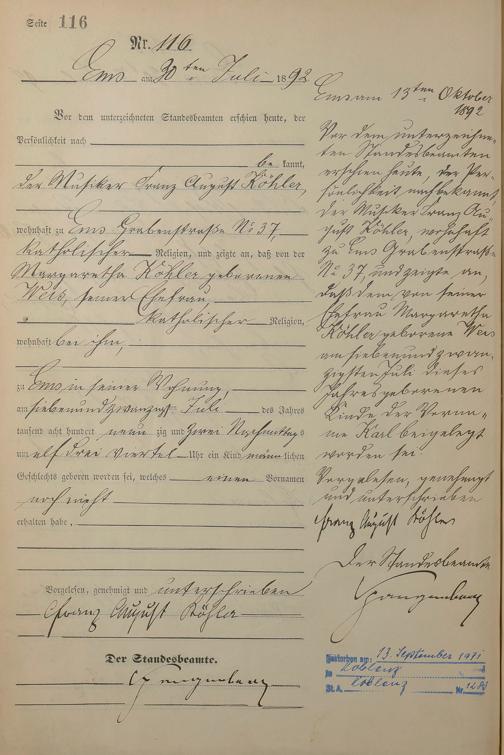 Seite 116
Nr. 116
Ems am 30ten Juli 1892
Vor dem unterzeichneten Standesbeamten erschien heute, der
Persönlichkeit nach
bekannt,
der Musiker Franz August Köhler,
wohnhaft zu Ems Grabenstraße No 37,
katholischer Religion, und zeigte an, daß von der
Margaretha Köhler geborenen
Weis, seiner Ehefrau,
katholischer Religion,
wohnhaft bei ihm,
zu Ems in seiner Wohnung,
am siebenundzwanzigsten Juli des Jahres
tausend acht hundert neunzig und zwei Nachmittags
um elf drei viertel Uhr ein Kind männlichen
Geschlechts geboren worden sei, welches einen Vornamen
noch nicht
erhalten habe,
Vorgelesen, genehmigt und unterschrieben
Franz August Köhler
Der Standesbeamte.
Ems am 13ten Oktober
1892
Vor dem unterzeichne-
ten Standesbeamten
erschien heute, der Per-
sönlichkeit nach bekannt,
der Musiker Franz Au-
gust Köhler, wohnhaft
zu Ems Grabenstraße
No 37, und zeigte an,
daß dem von seiner
Ehefrau Margaretha
Köhler geborene Weis
am siebenundzwan-
zigsten Juli dieses
Jahres geborenen
Kinde der Vorna-
me Karl beigelegt
worden sei.
Vorgelesen, genehmigt
und unterschrieben
Franz August Köhler
Der Standesbeamte
Gestorben am: 13. September 1971
in Koblenz
St.A. Koblenz Nr.